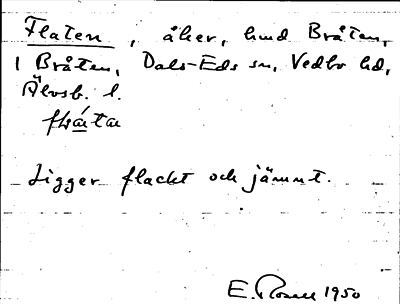 Flaten, åker, hmd Bråten,
1 Bråten, Dals-Eds sn, Vedbo hd,
Älvsb. l.
Ligger flackt och jämnt.
E. 1950